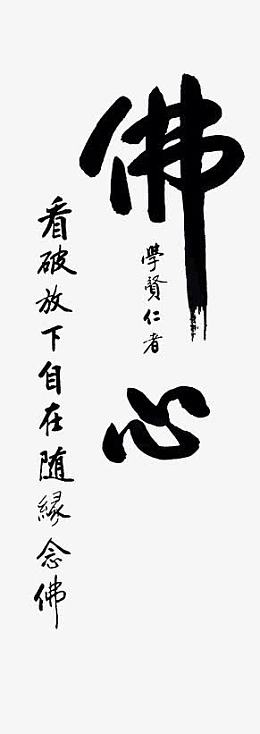 佛心
學賢仁者
看破放下自在随緣念佛